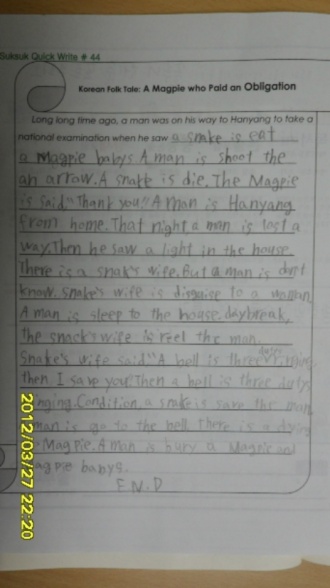 Suksuk Quick Write # 44
Korean Folk Tale: A Magpie who Paid an Obligation
Long long time ago, a man was on his way to Hanyang to take a
national examination when he saw a snake is eat
a Magpie babys A man is shoot the
an arrow. A snake is die. The Magpie
is said "Thank you" A man is Hanyang
from home. That night a man is lost a
way. Then he saw a light in the house.
There is a snake's wife. But a man is don't
know. snake's wife is disguise to a woman
A man is sleep to the house. daybreak,
the snack's wife is reel the man.
Snake's wife said "A bell is three ringing
then I save you" Then a bell is three
inging. Condition a snake is save the man
man is go to the bell. There is a dying
MagPie. A man is bury a Magpie and
agpie babys.
E N D
2012/03/27 22:20